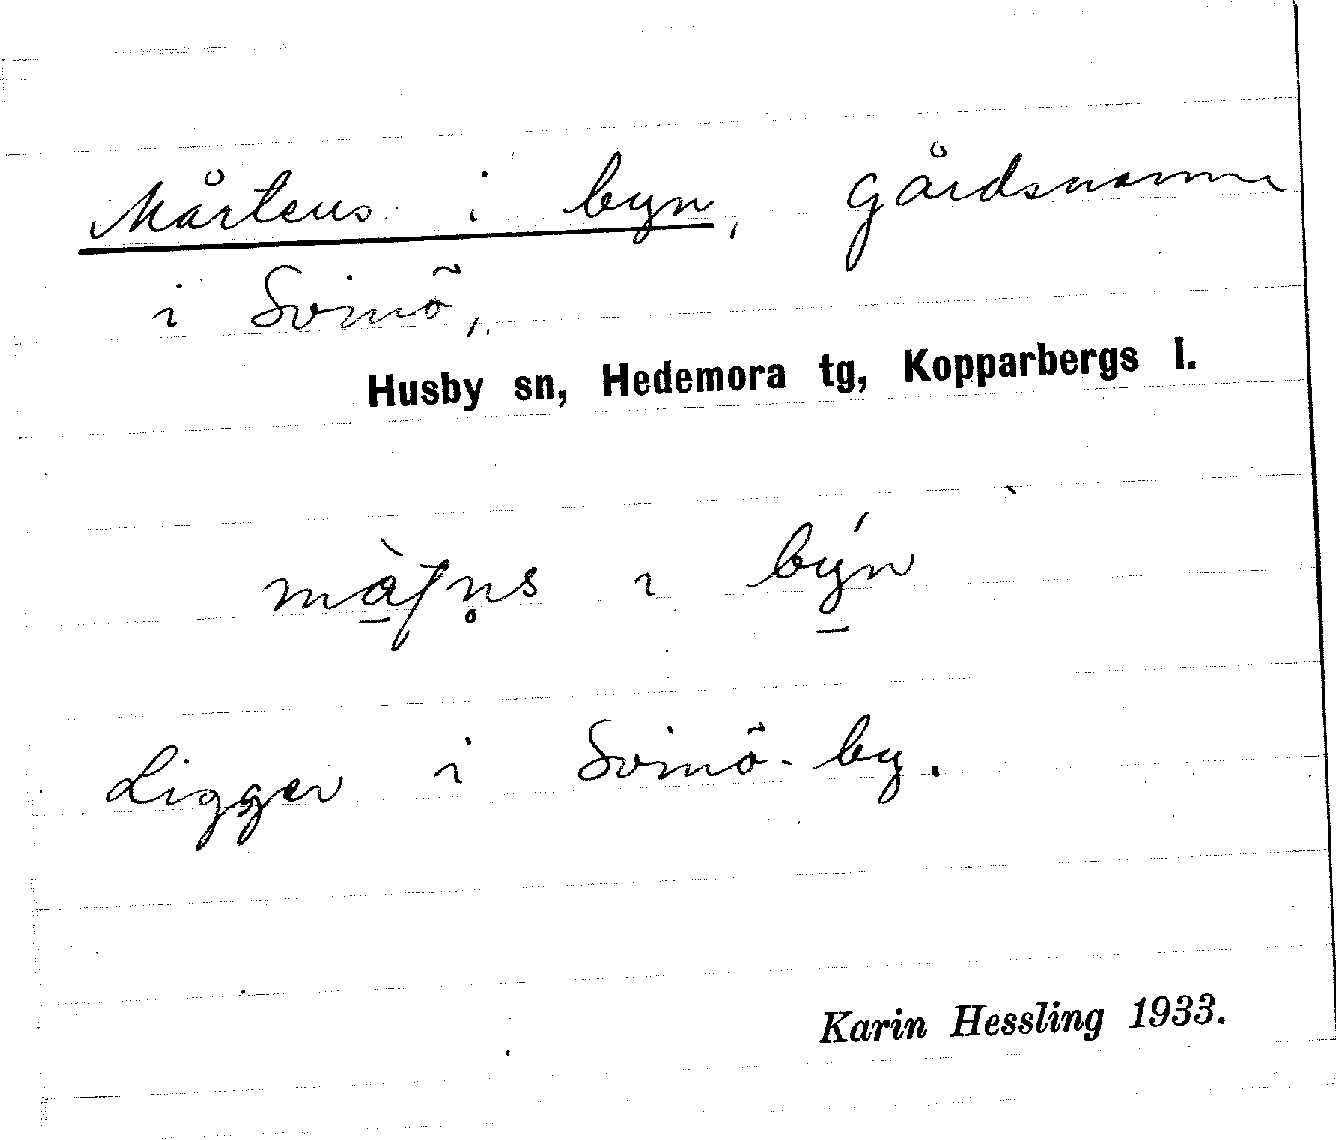 Mårtens i byn, gårdsnamn
i Svinö,
Husby sn, Hedemora tg, Kopparbergs l.
i býn
Ligger i Svinö by.
Karin Hessling 1933.